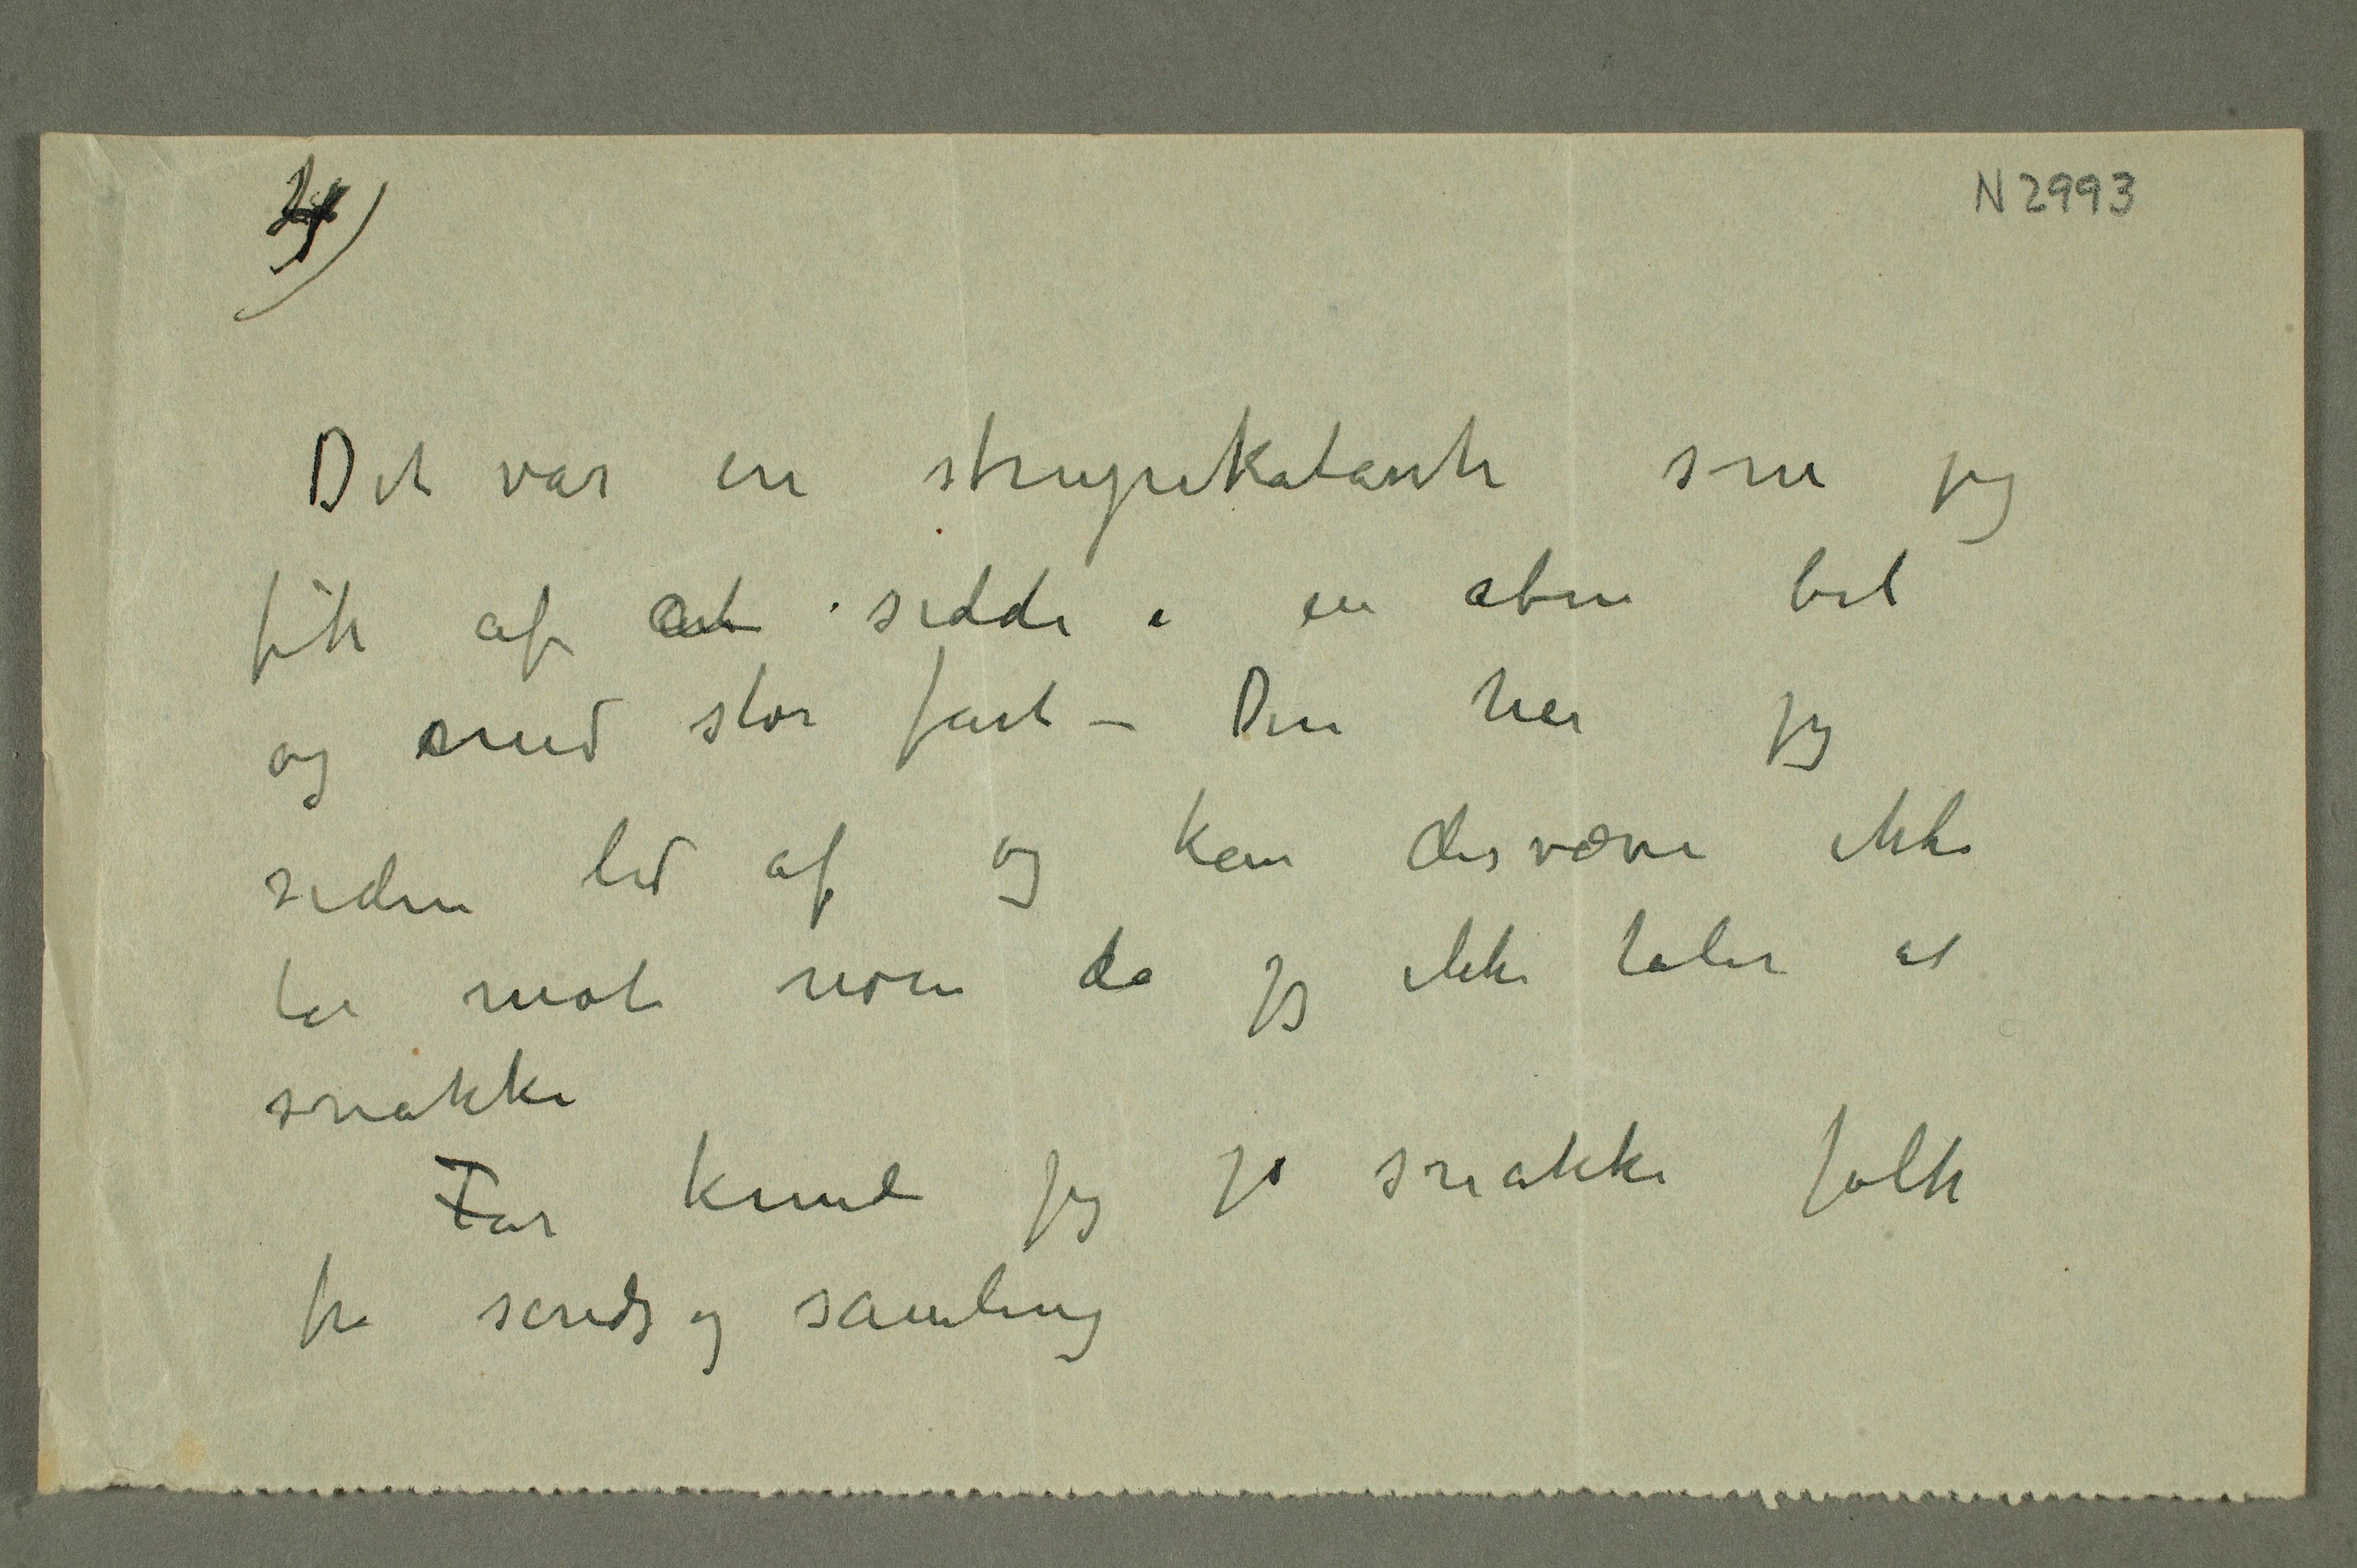 4)
N 2993
Det var en strupekatarrh som jeg
fik af at sidde i en åben bil
og med stor fart – Den har jeg
siden lid af og kan desværre ikke
ta mot noen da jeg ikke tåler at
snakke
Før kunde jeg jo snakke folk
fra sands og samling